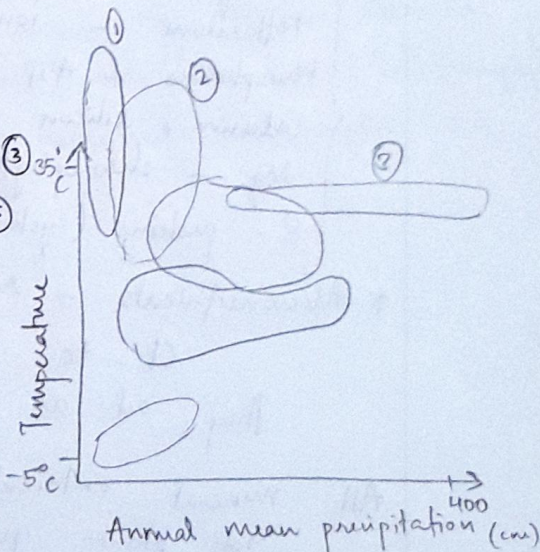 ①
②
③ 35°C
③
Temperature
-5°C
400
Annual mean precipitation (cm)